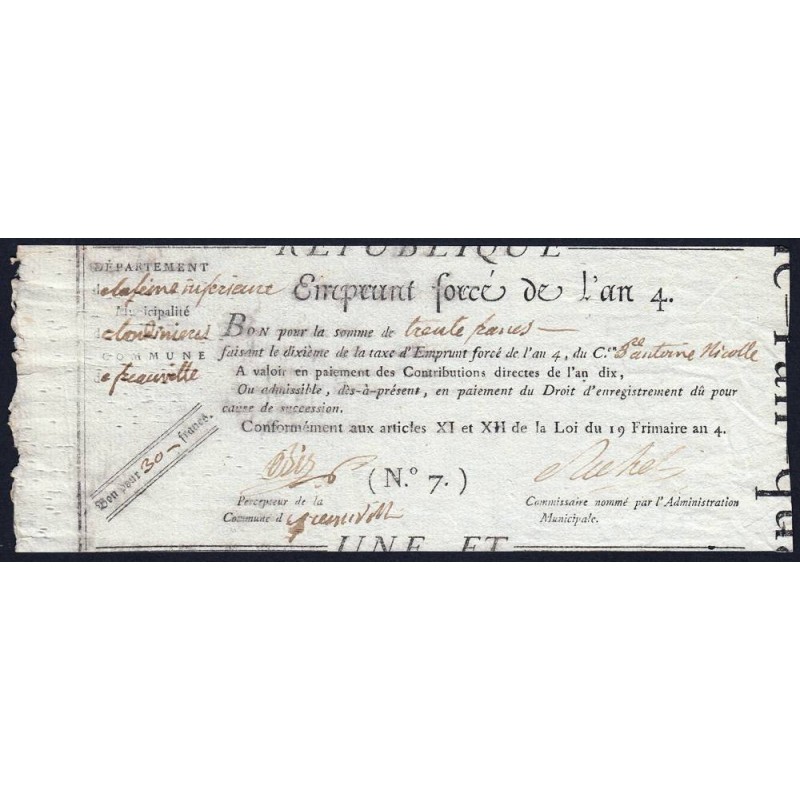 RÉPUBLIQUE
DÉPARTEMENT
de la seine inferieure
Municipalité
de Londinieres
COMMUNE
de freauville
Bon pour 30 francs.
Emprunt forcé de l'an 4.
BON pour la somme de trente francs
faisant le dixième de la taxe d'Emprunt forcé de l'an 4, du C.en antoine Nicolle
A valoir en paiement des Contributions directes de l'an dix,
Ou admissible, dès-à-présent, en paiement du Droit d'enregistrement dû pour
cause de succession.
Conformément aux articles XI et XII de la Loi du 19 Frimaire an 4.
(N.o 7.)
Percepteur de la
Commune d
Commissaire nommé par l'Administration
Municipale.
UNE ET